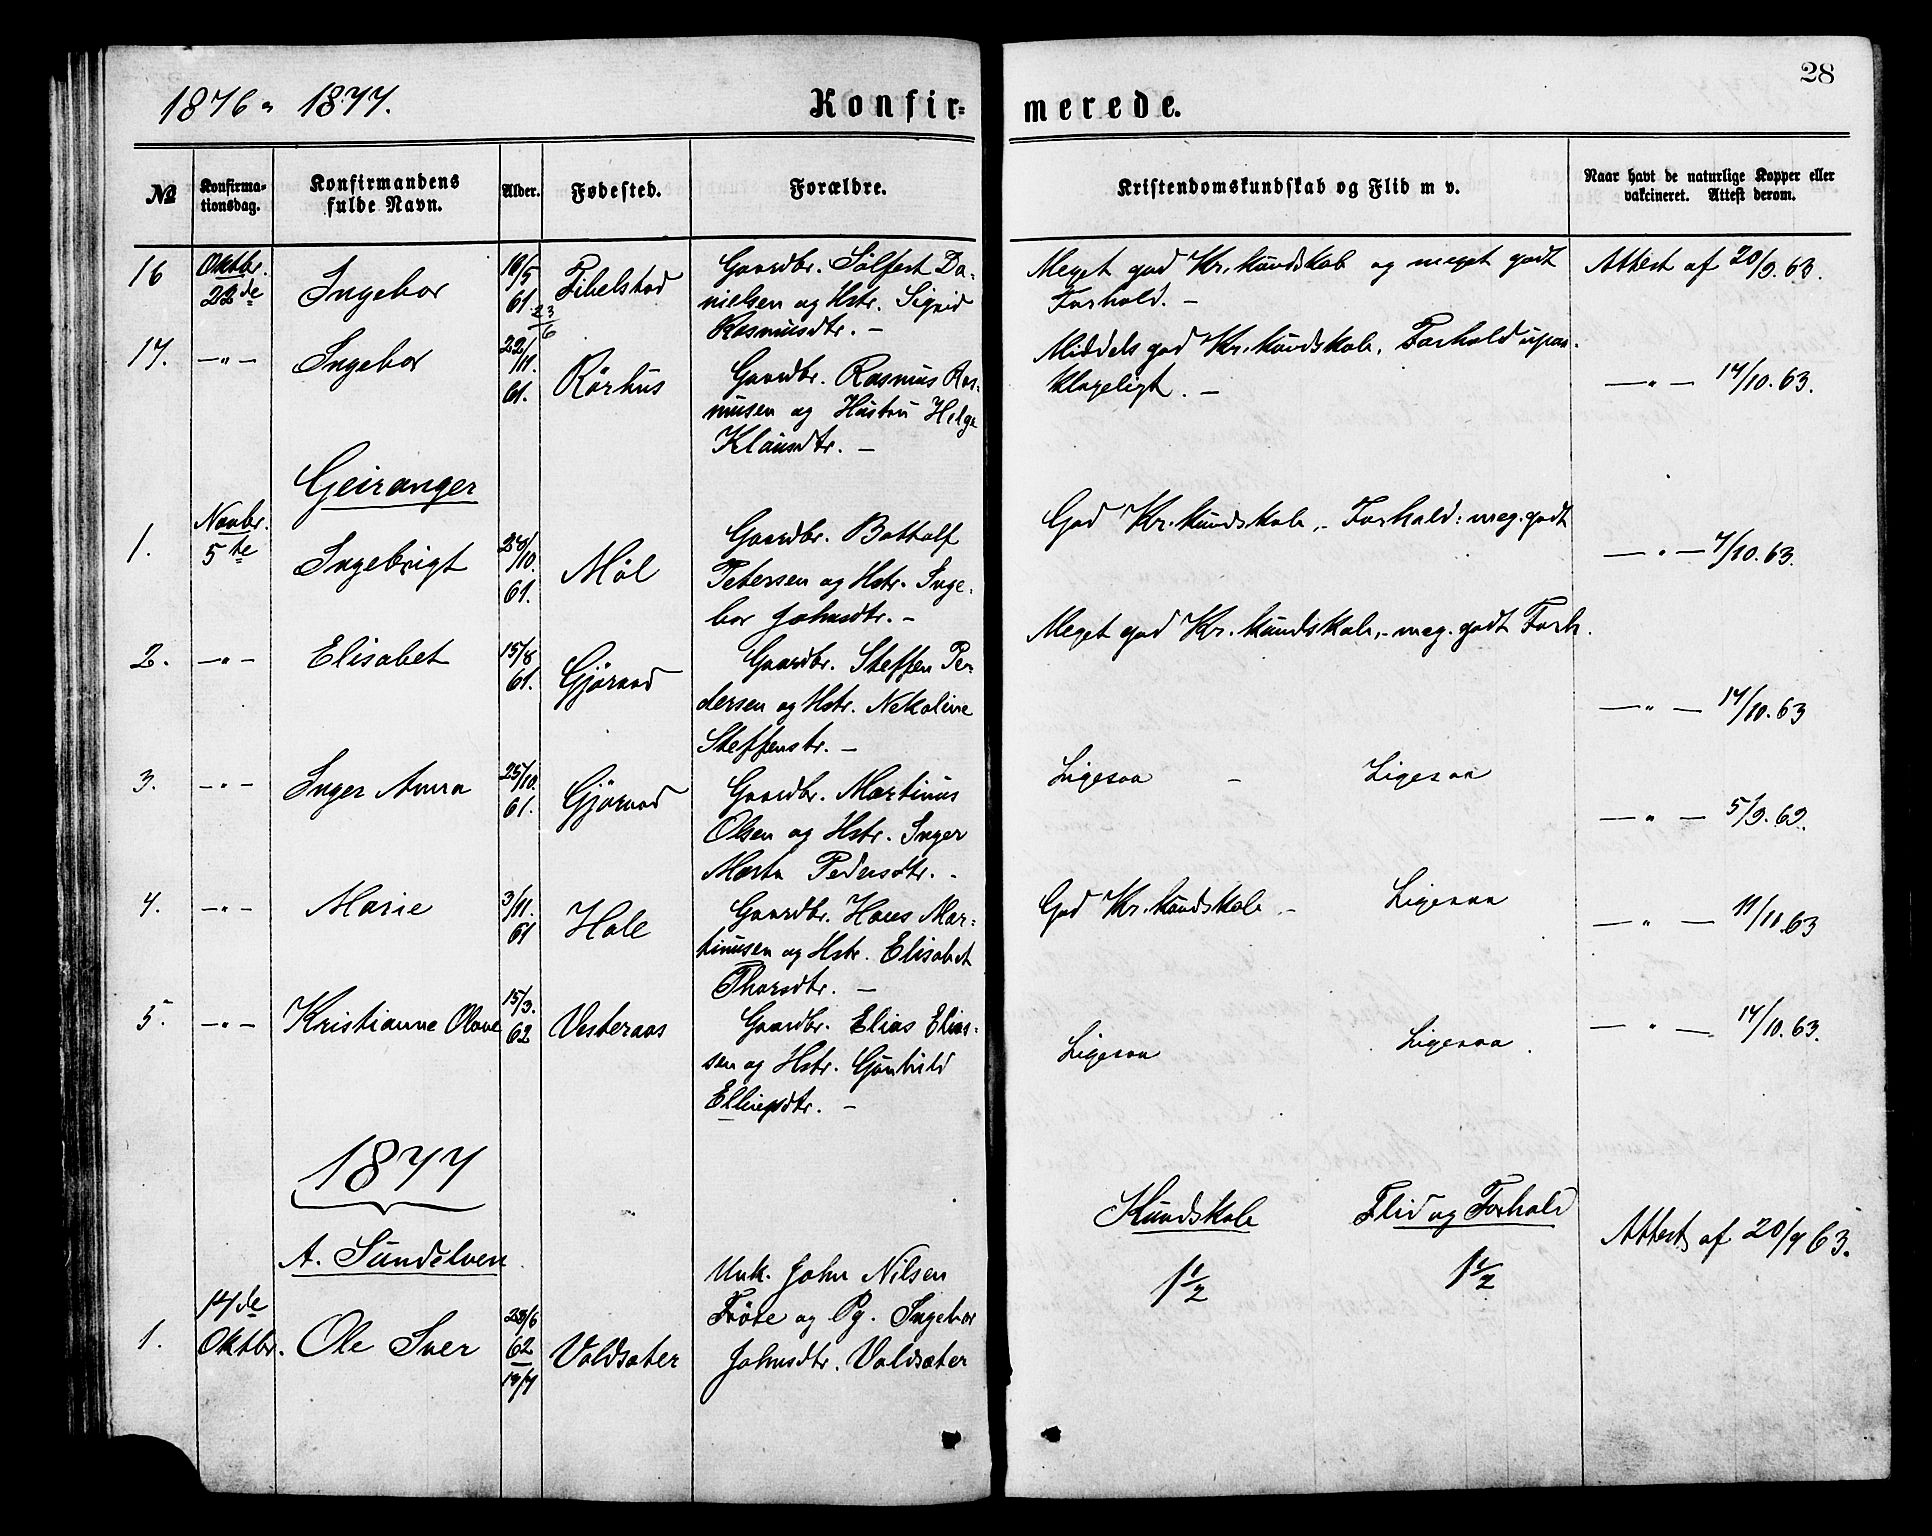 28
1876 & 1877. Konfir= merede.
No Konfirma-tionsdag. Konfirmandens fulde Navn. Alder. Fødested. Forældre. Kristendomskundskab og Flid m v. Naar havt de naturlige Kopper eller vakcineret. Attest derom.
16 Oktbr. 22de Ingebor 61. Fibelstad
Gaardbr. Sølfest Da-
nielsen og Hstr. Sigrid
Rasmusdtr. —
Meget god Kr. kundskab og meget godt
Forhold. —
Attest af 20/9. 63.
17. —„— Ingebor 22/11. 61. Rørhus
Gaardbr. Rasmus Ras-
musen og Hustru Helga
Klausdtr. —
Middels god Kr. kundskab. Forhold upaa-
klageligt. —
—„— 17/10. 63.
Geiranger
1. Novbr. 5te Ingebrigt 28/10. 61. Møl
Gaardbr. Bottolf
Petersen og Hstr. Inge-
bor Johnsdtr. —
God Kr. kundskab, - Forhold: meg. godt
—„— 7/10. 63.
2. —„— Elisabet 15/8 61. Gjørvad
Gaardbr. Steffen Pe-
dersen og Hstr. Nekoline
Steffenstr. —
Meget god Kr. kundskab, - meg. godt Forh.
—„— 17/10. 63
3. —„— Inger Anna 25/10. 61. Gjørvad
Gaardbr. Martinus
Olsen og Hstr. Inger
Marta Pedersdtr. -
Ligesaa - Ligesaa
—„— 5/9. 62.
4. —„— Marie 3/11. 61 Hole
Gaardbr. Hans Mar-
tinusen og Hstr. Elisabet
Thorsdtr. —
God Kr. kundskab - Ligesaa
—„— 11/10. 63
5. —„— Kristianne Olave 15/3. 62 Vesteraas
Gaardbr. Elias Elias-
sen og Hstr. Gunhild
Ellingsdtr. —
Ligesaa Ligesaa.
—„— 17/10. 63.
1877
A. Sundelven
Kundskab Flid og Forhold
1. 14de Oktbr. Ole Iver 28/6 62 Valdsæter
Unk. John Nilsen
Frøte og Pg. Ingebor
Johnsdtr. Valdsæter
1 1/2 1 1/2
Attest af 20/9 63.